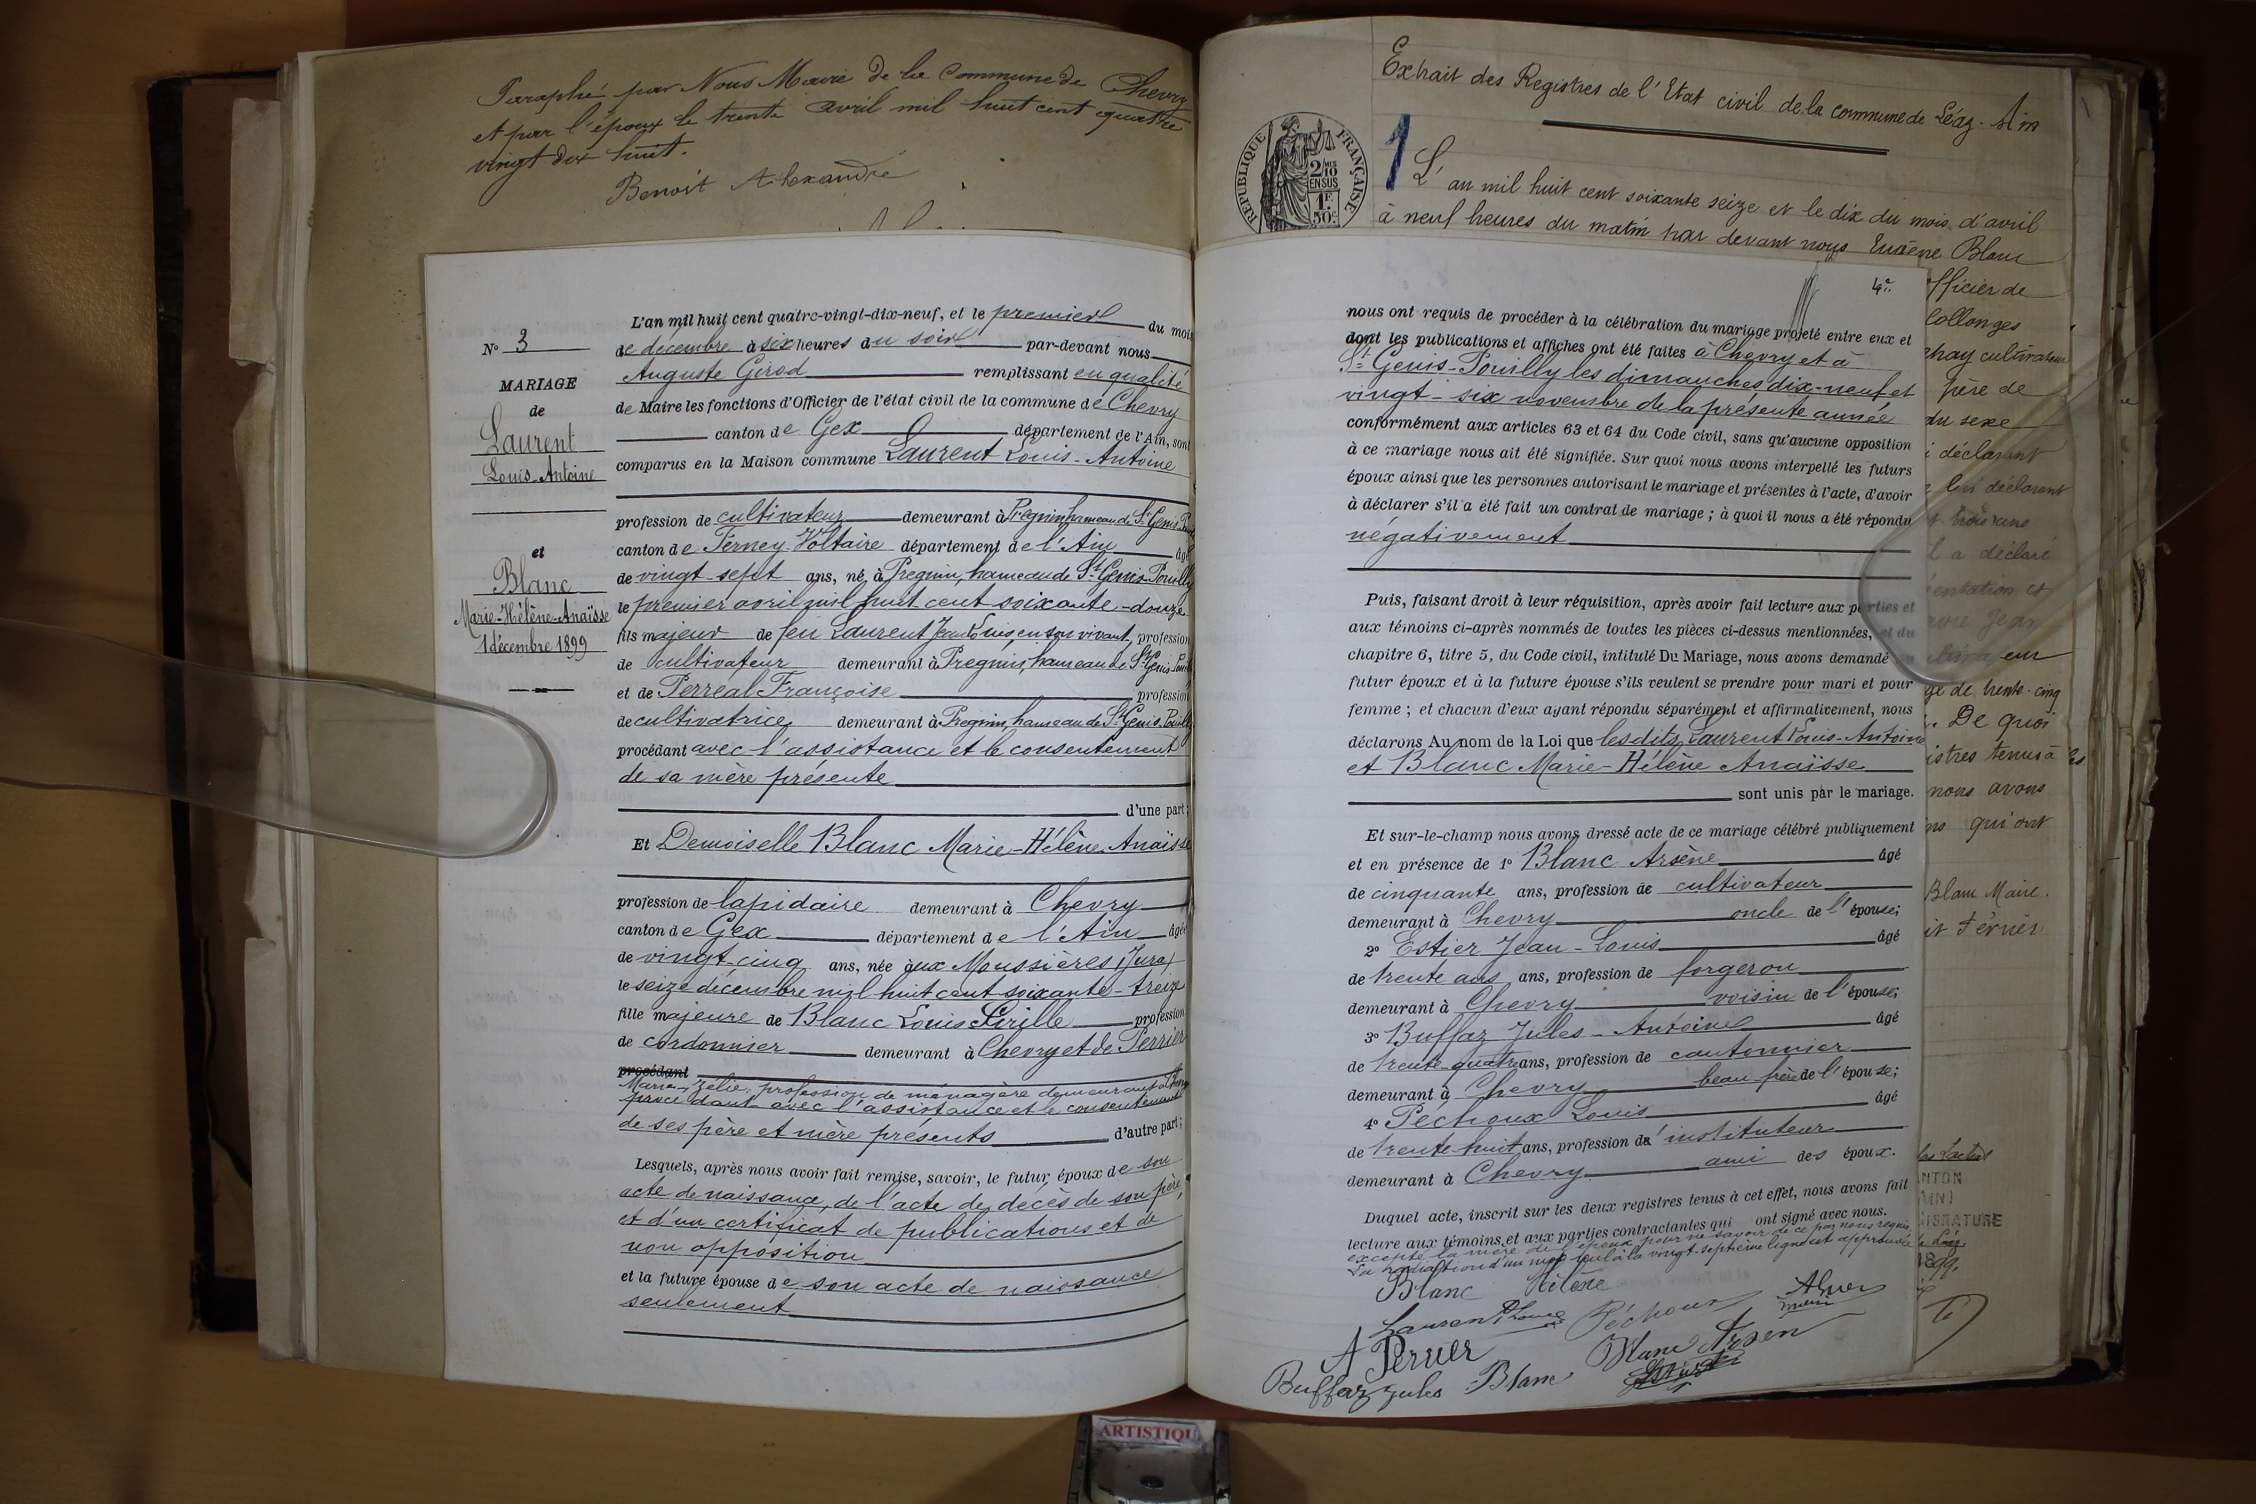 Paraphé par Nous Maire de la Commune de Chevry
et par l'époux le trente avril mil huit cent quatre
vingt dix huit.
Benoit Alexandre
N° 3
MARIAGE
de
Laurent
Louis-Antoine
et
Blanc
Marie-Hélène-Anaïsse
1 décembre 1899
L'an mil huit cent quatre-vingt-dix-neuf, et le premier du mois
de décembre à six heures du soir par-devant nous
Auguste Gerod remplissant en qualité
de Maire les fonctions d'Officier de l'état civil de la commune de Chevry
canton de Gex département de l'Ain, sont
comparus en la Maison commune Laurent Louis-Antoine
profession de cultivateur demeurant à Pregnin hameau de St Genis
canton de Ferney-Voltaire département de l'Ain âgé
de vingt-sept ans, né à Pregnin, hameau de St Genis-Pouilly
le premier avril mil huit cent soixante-douze
fils majeur de feu Laurent Jean Louis, en son vivant, profession
de cultivateur demeurant à Pregnin, hameau de St Genis-Pouilly
et de Perréal Françoise profession
de cultivatrice demeurant à Pregnin, hameau de St Genis-Pouilly
procédant avec l'assistance et le consentement
de sa mère présente
d'une part;
Et Demoiselle Blanc Marie-Hélène-Anaïsse
profession de lapidaire demeurant à Chevry
canton de Gex département de l'Ain âgée
de vingt-cinq ans, née aux Moussières (Jura)
le seize décembre mil huit cent soixante-treize
fille majeure de Blanc Louis Sirille profession
de cordonnier demeurant à Chevry et de Perrier
procédant
Marie-Zélie, profession de ménagère demeurant à Chevry
procédant avec l'assistance et le consentement
de ses père et mère présents d'autre part;
Lesquels, après nous avoir fait remise, savoir, le futur époux de son
acte de naissance, de l'acte de décès de son père,
et d'un certificat de publications et de
non opposition
et la future épouse de son acte de naissance
seulement
Extrait des Registres de l'Etat civil de la commune de Léaz. Ain
RÉPUBLIQUE FRANÇAISE
2/10 EN SUS
1F. 50c.
1
L'an mil huit cent soixante seize et le dix du mois d'avril
à neuf heures du matin par devant nous Eugène Blanc
officier de
Collonges
cultivateur
père de
du sexe
déclarant
déclarant
l a déclaré
entation et
Jean
eur
ge de trente-cinq
De quoi
istres tenus à
nous avons
qui ont
Blanc Maire.
4e
nous ont requis de procéder à la célébration du mariage projeté entre eux et
dont les publications et affiches ont été faites à Chevry et à
St Genis-Pouilly les dimanches dix-neuf et
vingt-six novembre de la présente année
conformément aux articles 63 et 64 du Code civil, sans qu'aucune opposition
à ce mariage nous ait été signifiée. Sur quoi nous avons interpellé les futurs
époux ainsi que les personnes autorisant le mariage et présentes à l'acte, d'avoir
à déclarer s'il a été fait un contrat de mariage; à quoi il nous a été répondu
négativement
Puis, faisant droit à leur réquisition, après avoir fait lecture aux parties et
aux témoins ci-après nommés de toutes les pièces ci-dessus mentionnées, et du
chapitre 6, titre 5, du Code civil, intitulé Du Mariage, nous avons demandé au
futur époux et à la future épouse s'ils veulent se prendre pour mari et pour
femme; et chacun d'eux ayant répondu séparément et affirmativement, nous
déclarons Au nom de la Loi que lesdits Laurent Louis-Antoine
et Blanc Marie-Hélène Anaïsse
sont unis par le mariage.
Et sur-le-champ nous avons dressé acte de ce mariage célébré publiquement
et en présence de 1° Blanc Arsène âgé
de cinquante ans, profession de cultivateur
demeurant à Chevry oncle de l'épouse;
2° Estier Jean-Louis âgé
de trente ans ans, profession de forgeron
demeurant à Chevry voisin de l'épouse;
3° Buffaz Jules-Antoine âgé
de trente-quatre ans, profession de cantonnier
demeurant à Chevry beau-frère de l'épouse;
4° Péchoux Louis âgé
de trente-huit ans, profession d'instituteur
demeurant à Chevry ami des époux.
Duquel acte, inscrit sur les deux registres tenus à cet effet, nous avons fait
lecture aux témoins et aux parties contractantes qui ont signé avec nous.
excepté la mère de l'époux pour ne savoir de ce par nous requis
La radiation d'un mot nul à la vingt-septième ligne est approuvée
Blanc Hélène
Laurent Louis Péchoux
maire
A Perrier Blanc Arsen
Buffaz Jules Blanc
1899.
ARTISTIQU